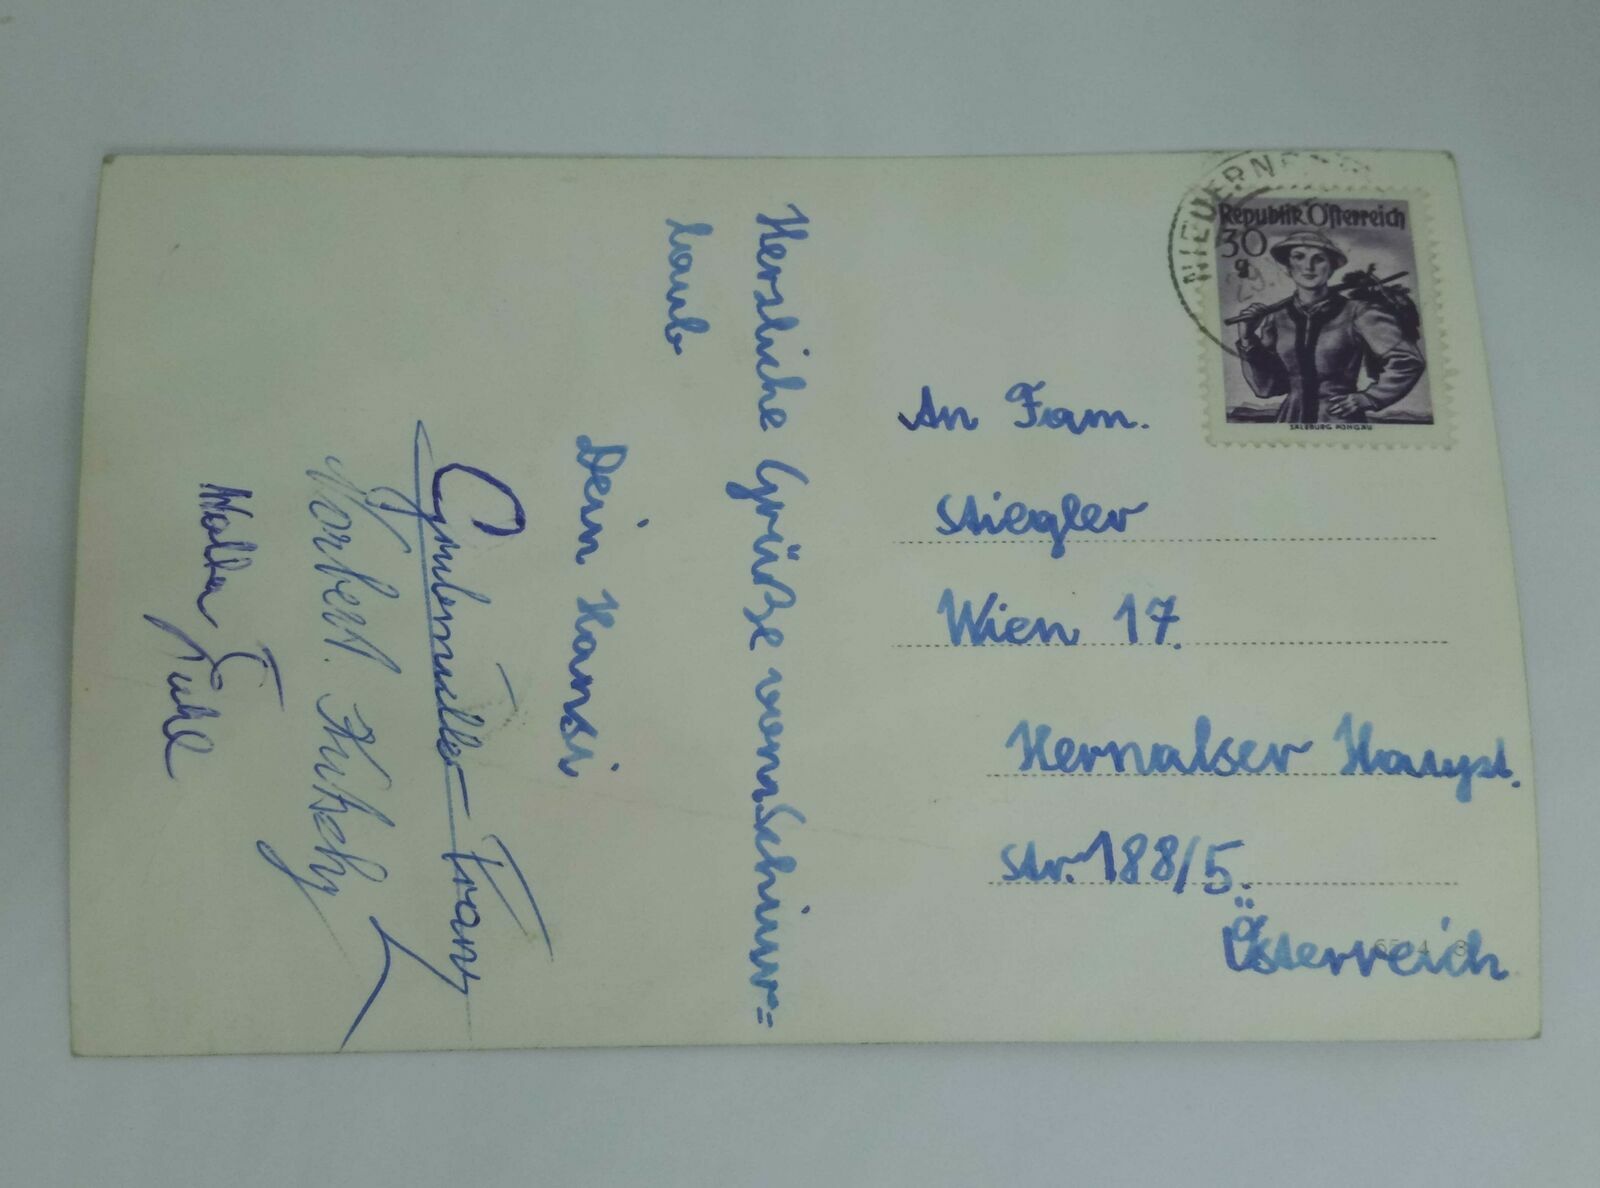 Herzliche Grüße vom Schiur=
laub
Dein Hansi
Franz
Norbert
Walter
NIEUERN
Republik Österreich
30
g
SALZBURG PONGAU
An Fam.
Stiegler
Wien 17.
Hernalser Haupt.
Str. 188/5.
Österreich